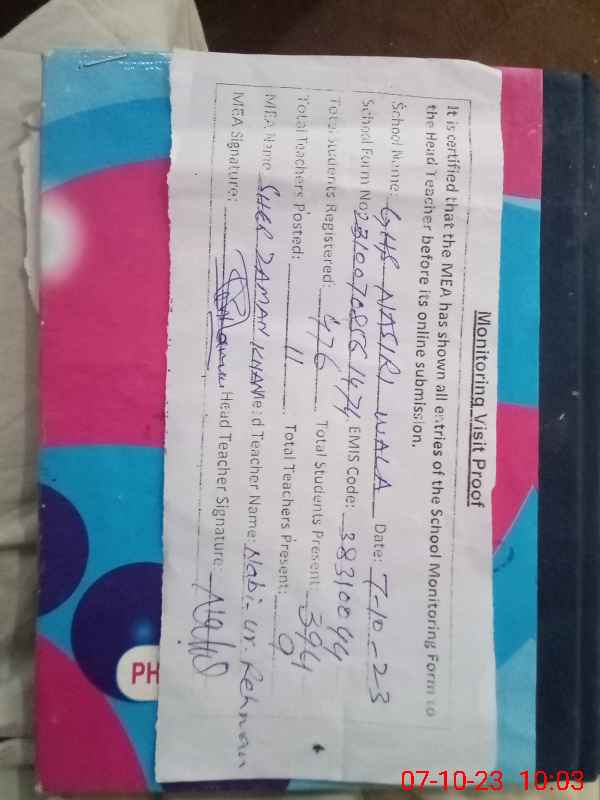 Monitoring Visit Proof
It is certified that the MEA has shown all entries of the School Monitoring Form to
the Head Teacher before its online submission.
School Name: GHS NASIRI WALA Date: 7-10-23
School Form No: EMIS Code: 38310044
Total Students Registered: 476 Total Students Present: 394
Total Teachers Posted: 11 Total Teachers Present: 9
MEA Name: SHER ZAMAN KHAN Head Teacher Name: Nabi-ur-Rehman
MEA Signature: Head Teacher Signature:
PH
07-10-23 10:03